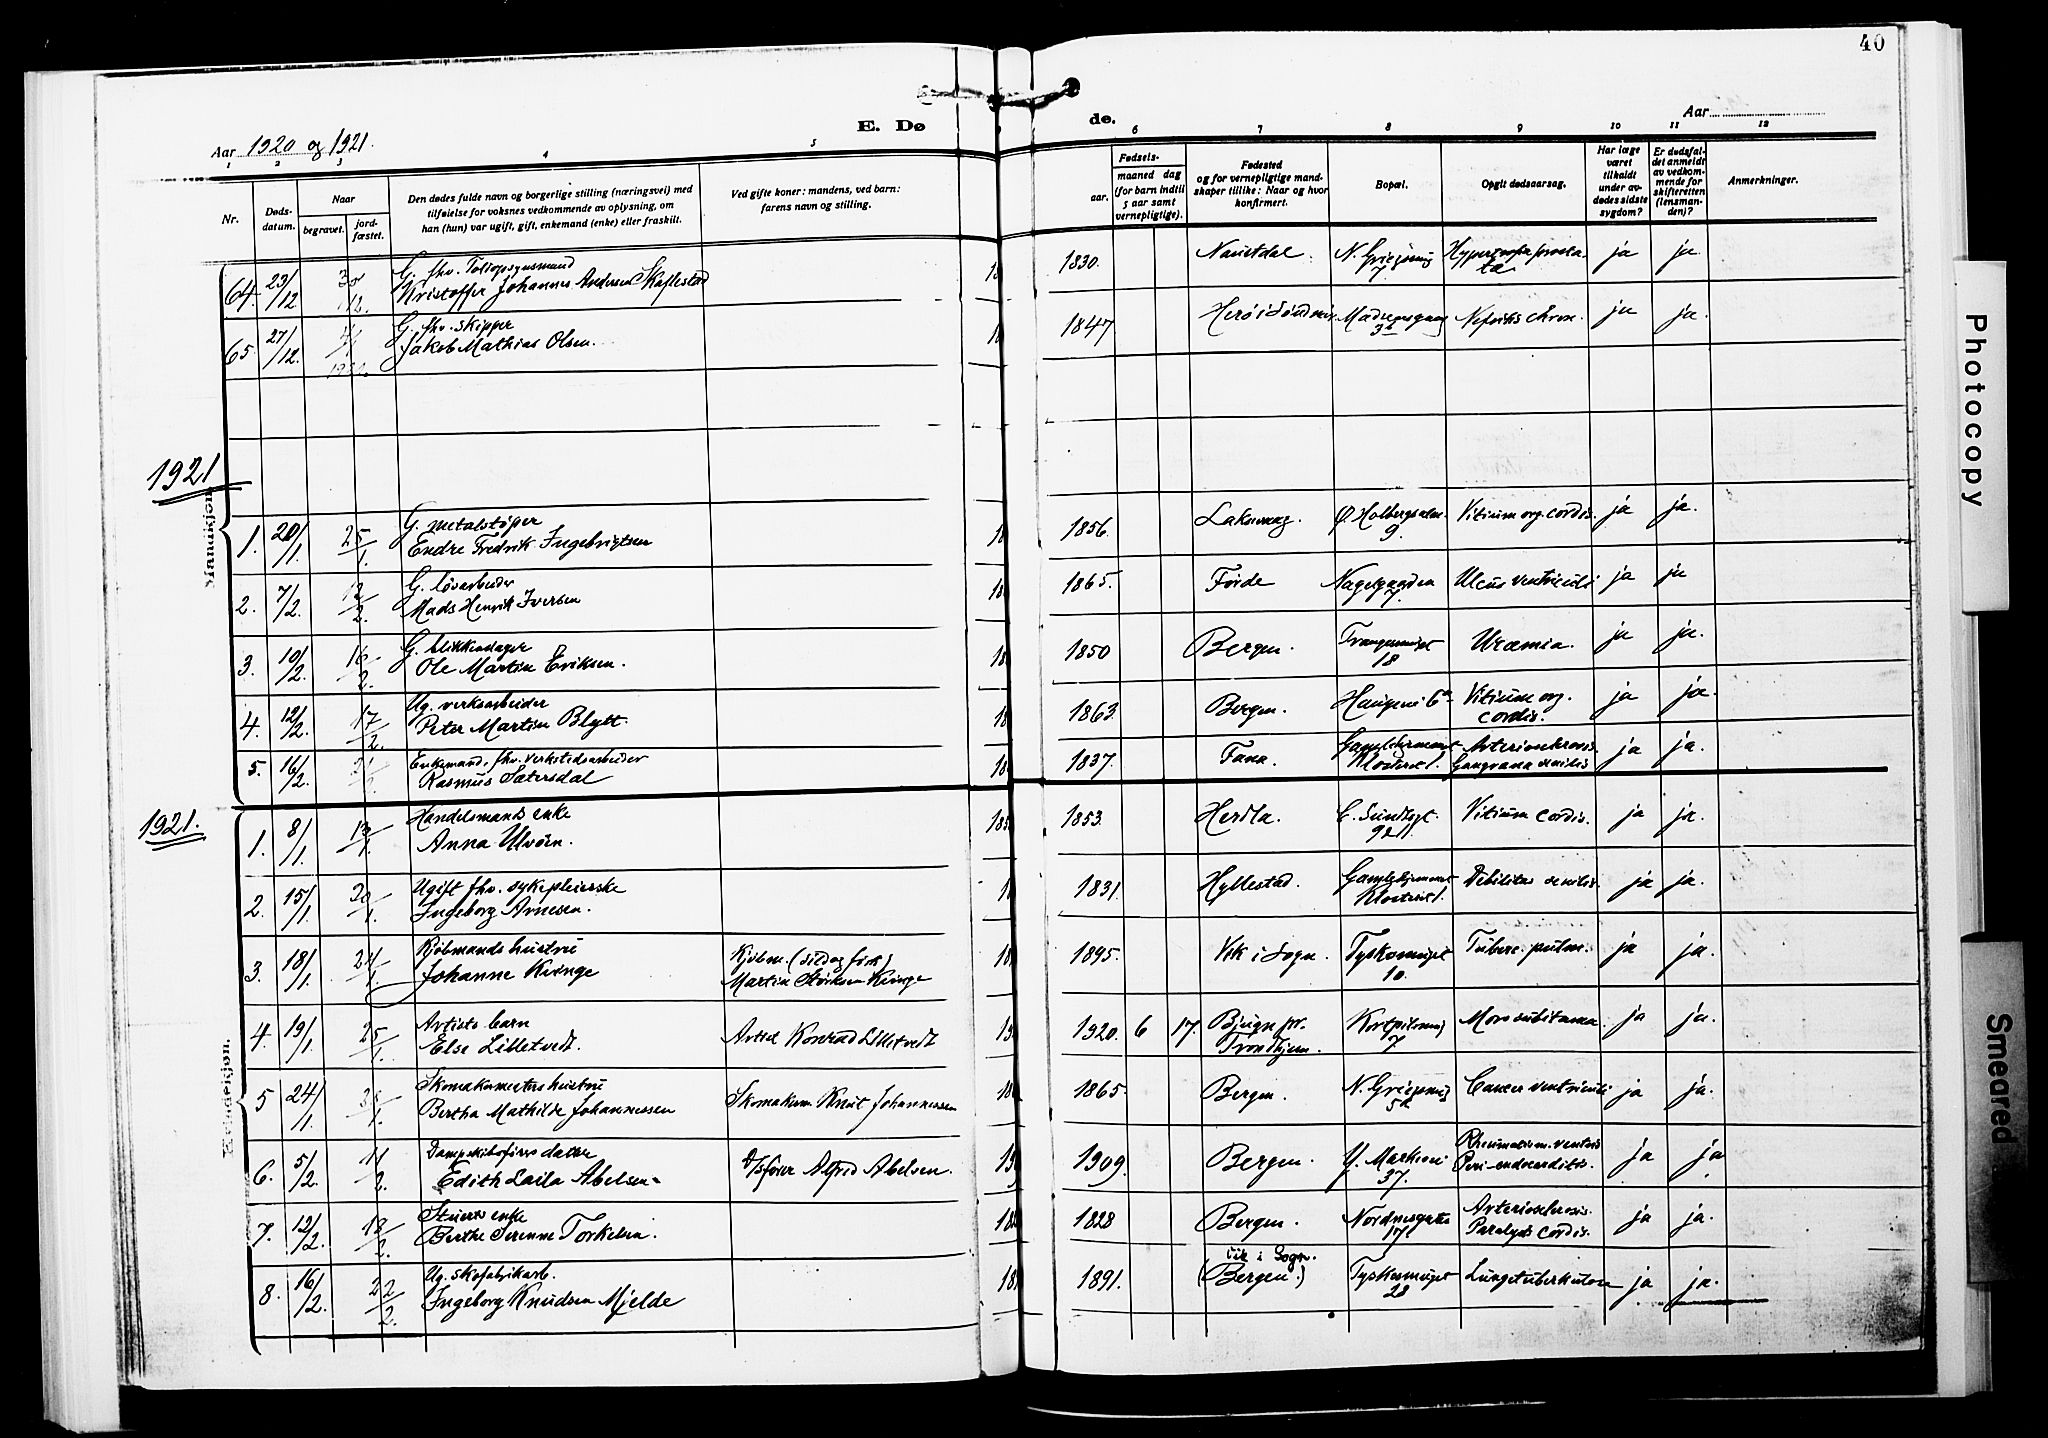 40
E. Døde.
Aar 1920 og 1921.
Aar
1 2 3 4 5 6 7 8 9 10 11 12
Nr.
Døds-
datum.
Naar
begravet.
jord-
fæstet.
Den dødes fulde navn og borgerlige stilling (næringsvei) med
tilføielse for voksnes vedkommende av oplysning, om
han (hun) var ugift, gift, enkemand (enke) eller fraskilt.
Ved gifte koner: mandens, ved barn:
farens navn og stilling.
Fødsels-
aar.
maaned dag
(for barn indtil
5 aar samt
vernepligtige).
Fødested
og for vernepligtige mand-
skaper tillike: Naar og hvor
konfirmert.
Bopæl.
Opgit dødsaarsag.
Har læge
været
tilkaldt
under av-
dødes sidste
sygdom?
Er dødsfal-
det anmeldt
av vedkom-
mende for
skifteretten
(lensman-
den)?
Anmerkninger.
64. 23/12 30/12. G. fhv.
Kristoffer Johannes Andersen 1830. N. 7 ja ja.
65. 27/12. G. fhv. skipper
Jakob Mathias Olsen. 1847 ja ja.
1921
Mandkjøn.
1. 20/1. 25/1. G. metalstøper
Endre Fredrik Ingebrigtsen 1856. 9. Vitium org. cordis. ja ja.
2. 7/2. 12/2. G.
Mads Henrik Iversen 1865. Førde Nagelgaarden 7. Ulcus ventriculi ja ja
3. 10/2. 16/2. G. blikkenslager
Ole Martin Eriksen. 1850 Bergen. 18 Uræmia. ja ja.
4. 12/2. 17/2. Ug. verksarbeider
Peter Martin Blytt. 1863. Bergen. Haugevei 6a Vitium org.
cordis. ja ja.
5. 16/2. Enkemand, fhv. verkstedsarbeider
Rasmus Sætersdal 1837. Fana. Gamlehjemmet
Klosteret 1. Arteriosklerosis.
Gangræna senilis ja ja.
1921.
Kvindekjøn.
1. 8/1. 13/1. Handelsmands enke
Anna Ulvøen. 1853. Herdla. C. Sundtsgt.
Vitium cordis. ja ja.
2. 15/1. 20/1. Ugift fhv. sykepleierske
Ingeborg Arnesen. 1831. Hyllestad. Gamlehjemmet
Klosteret 1. Debilitas senilis. ja ja.
3. 18/1. 24/1. Kjøbmands hustru
Johanne Kvinge Kjøbm. (sild og fisk)
Martin Størksen Kvinge 1895. Vik i Sogn. Tyskesmuget
10. Tuberc. pulm. ja ja.
4. 19/1. 25/1. Artists barn
Else Lilletvedt. Artist Konrad Lilletvedt 1920. 6 17. Bjugn pr.
Trondhjem. 7 Mors subitanea. ja ja.
5 24/1. Skomakermesters hustru
Bertha Mathilde Johannessen Skomakerm Knut Johannessen 1865. Bergen. Cancer ventriculi ja ja.
6. 5/2. 11/2. Dampskibsførers datter
Edith Laila Abelsen. D/sfører Alfred Abelsen. 1909. Bergen. Y. Markevei
37. Rheumatism.
Peri-endocarditis. ja ja
7. 12/2. 18/2. enke
Berthe Serenne Torkelsen. 1828 Bergen. Nordnesgaten
Arteriosclerosis.
Paralysis cordis. ja ja.
8. 16/2. 22/2. Ug. skofabrikarb.
Ingeborg Knudsen Mjelde 1891. Vik i Sogn.
(Bergen.) Tyskesmuget
23 Lungetuberkulose ja ja.
Photocopy
Smeared